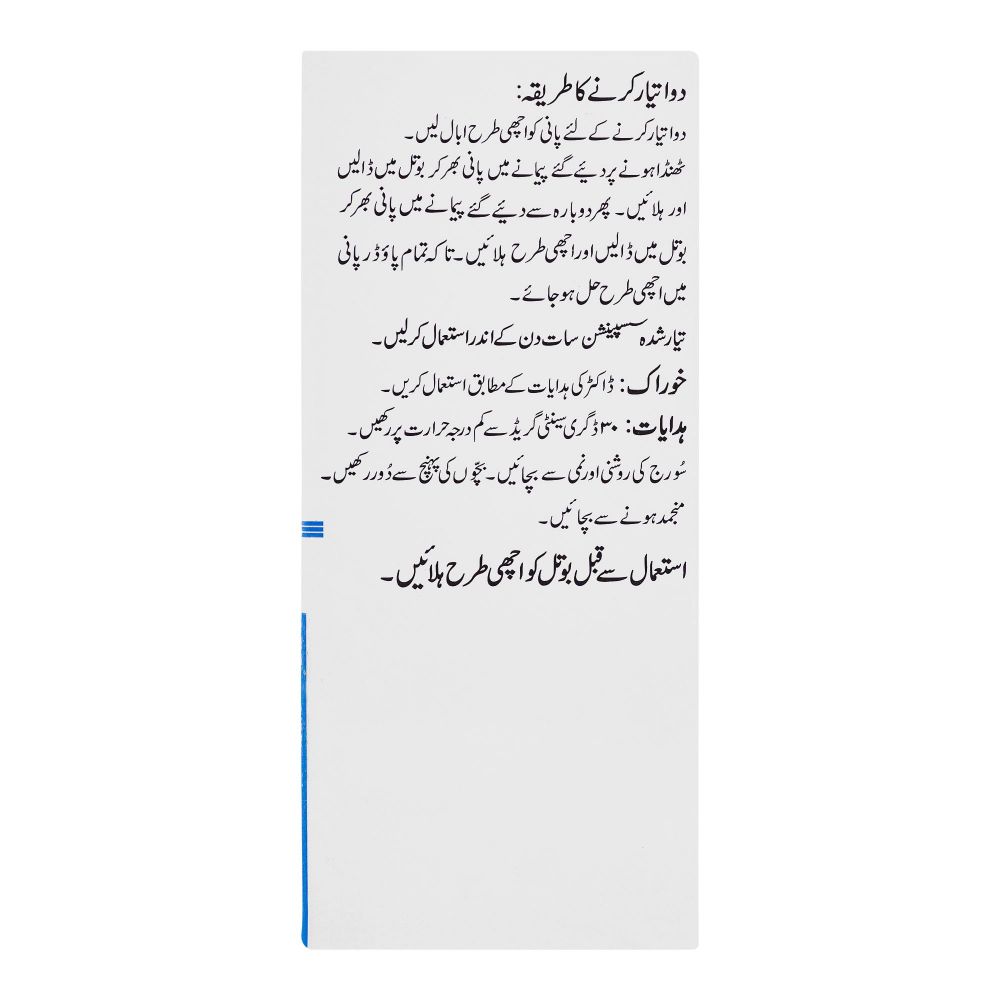 دوا تیار کرنے کا طریقہ:
دوا تیار کرنے کے لئے پانی کو اچھی طرح ابال لیں۔
ٹھنڈا ہونے پر دیئے گئے پیمانے میں پانی بھر کر بوتل میں ڈالیں
اور ہلائیں۔ پھر دوبارہ سے دیئے گئے پیمانے میں پانی بھر کر
بوتل میں ڈالیں اور اچھی طرح ہلائیں۔ تاکہ تمام پاؤڈر پانی
میں اچھی طرح حل ہو جائے۔
تیار شدہ سسپینشن سات دن کے اندر استعمال کرلیں۔
خوراک: ڈاکٹر کی ہدایات کے مطابق استعمال کریں۔
ہدایات: ۳۰ ڈگری سینٹی گریڈ سے کم درجہ حرارت پر رکھیں۔
سُورج کی روشنی اور نمی سے بچائیں۔ بچّوں کی پہنچ سے دُور رکھیں۔
منجمد ہونے سے بچائیں۔
استعمال سے قبل بوتل کو اچھی طرح ہلائیں۔